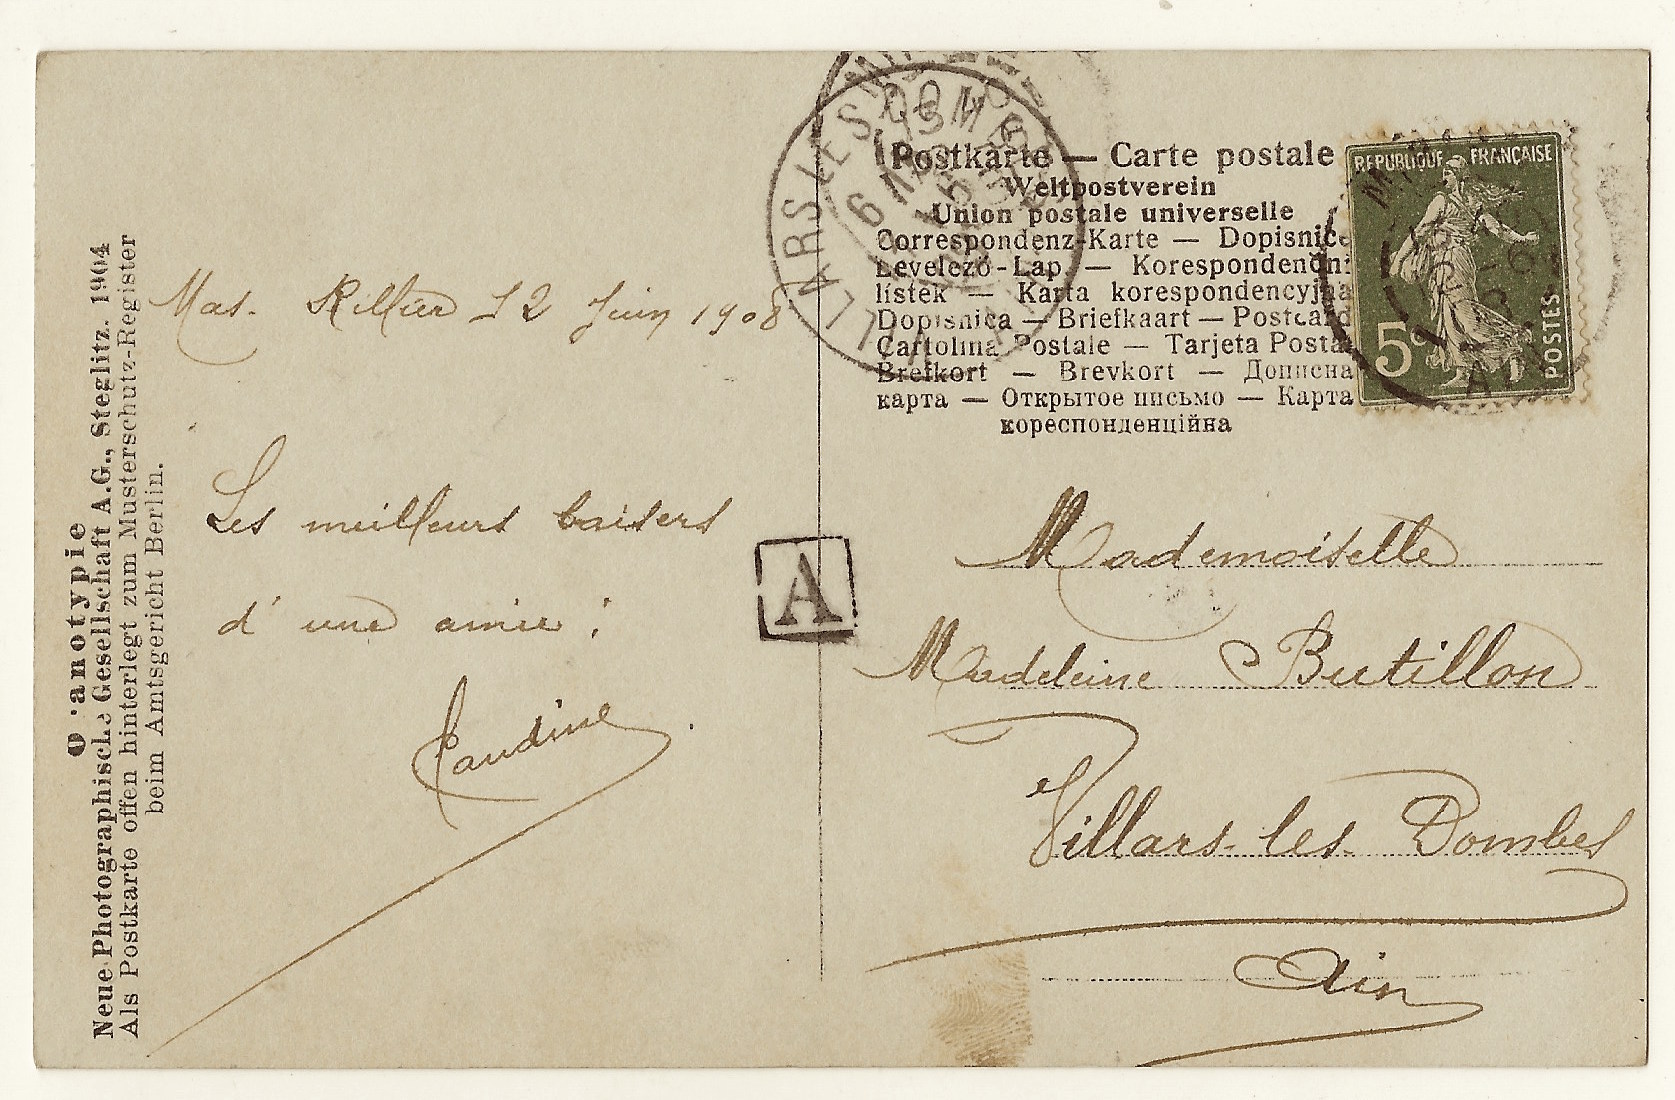 Postkarte — Carte postale
Weltpostverein
Union postale universelle
Correspondenz-Karte — Dopisnice
Levelező-Lap — Korespondenční
lístek — Karta korespondencyjna
Dopisnica — Briefkaart — Postcard
Cartolina Postale — Tarjeta Postal
Brefkort — Brevkort — Дописна
карта — Открытое письмо — Карта
кореспонденційна
REPUBLIQUE FRANÇAISE
5c
POSTES
VILLARS LES DOMBES
AIN
Mas. Rillier 12 Juin 1908
Les meilleurs baisers
d'une amie :
Claudine
A
Mademoiselle
Madeleine Butillon
Villars-les-Dombes
Ain
Neue Photographische Gesellschaft A.G., Steglitz. 1904
Als Postkarte offen hinterlegt zum Musterschutz-Register
beim Amtsgericht Berlin.